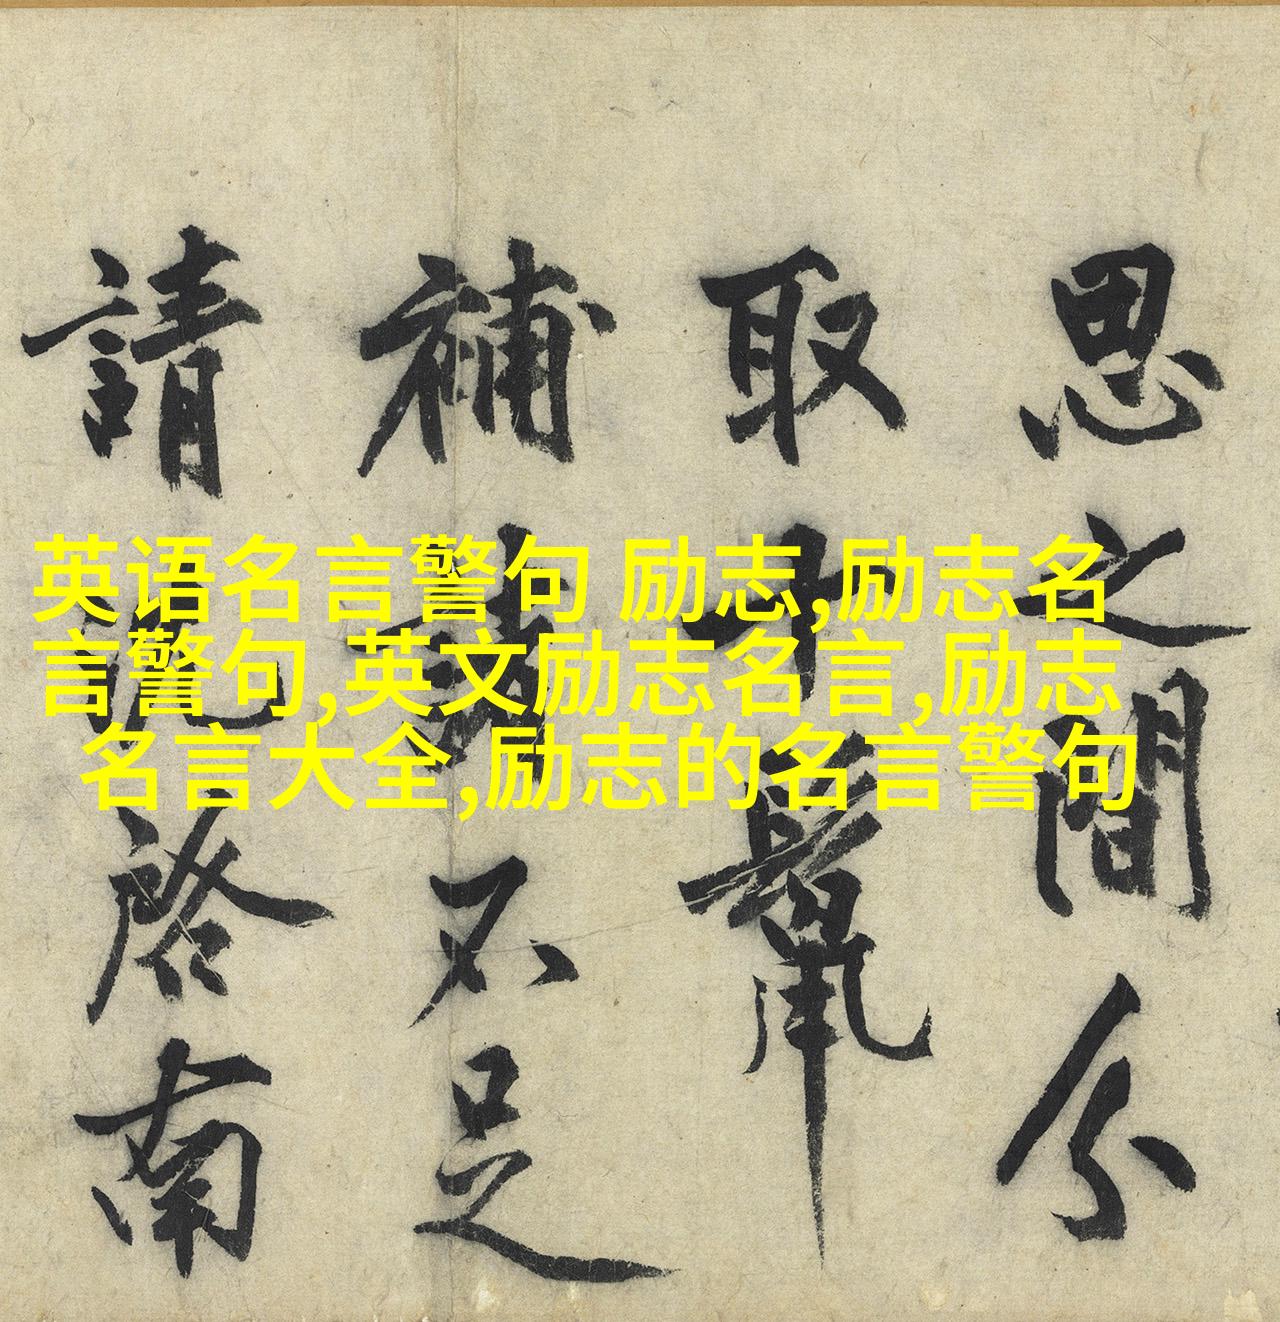 英语名言警句 励志,励志名
言警句,英文励志名言,励志
名言大全,励志的名言警句
思之間分
取十鬣
補諸不足
請沈啓南